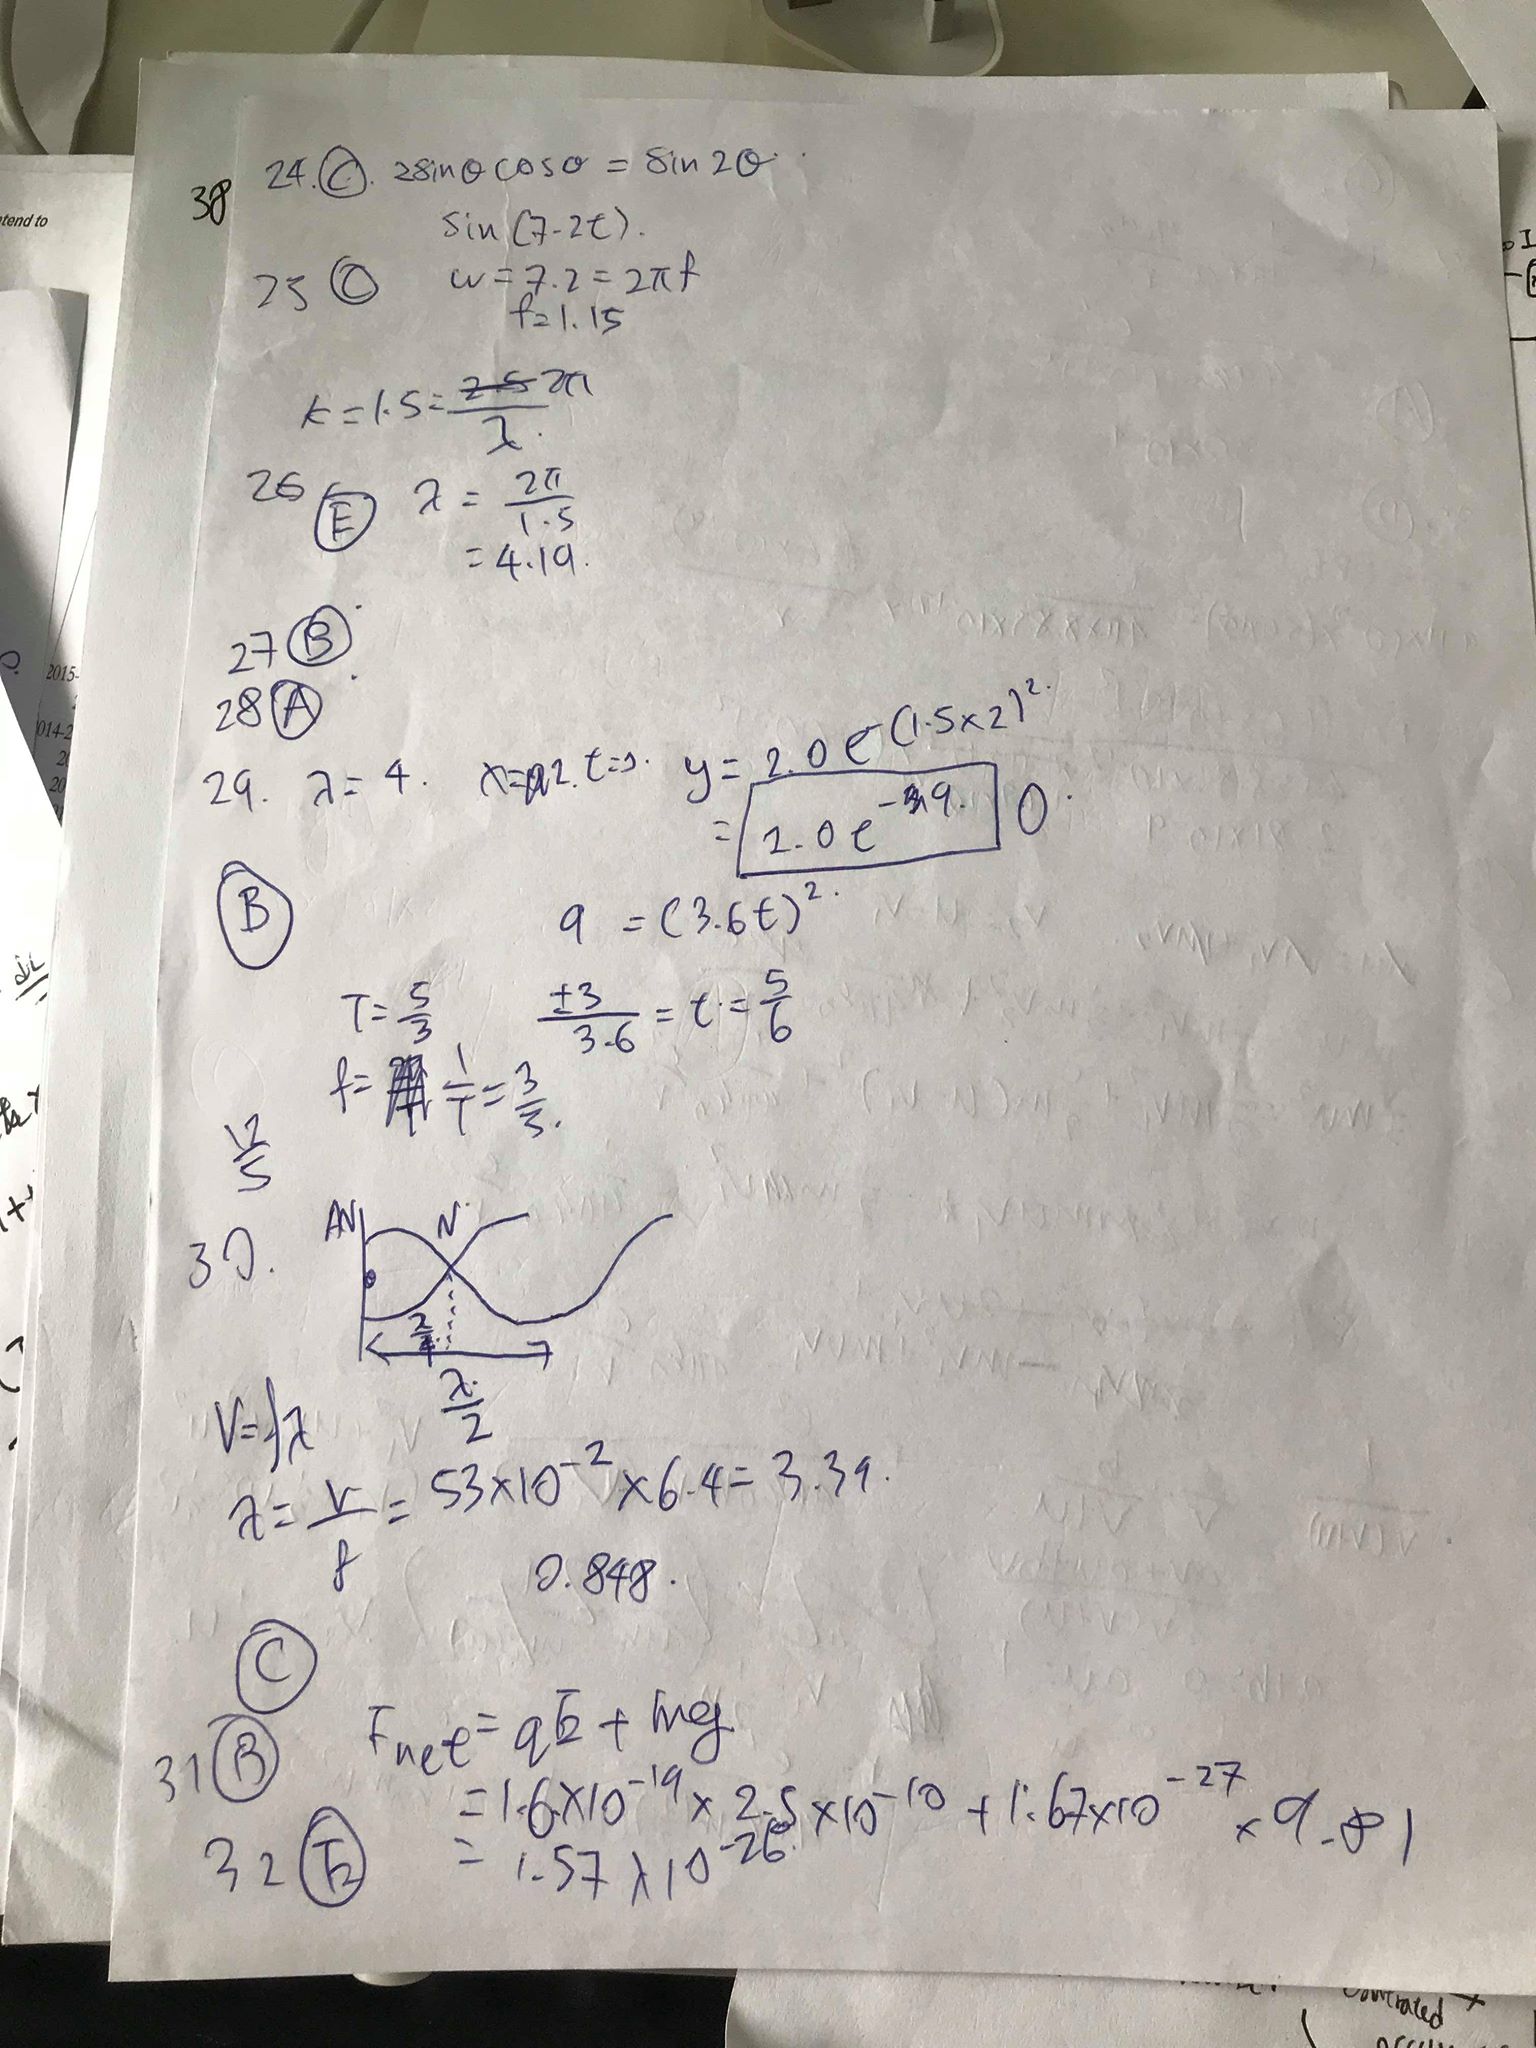 tend to
38
24. C. 2sinθcosθ = sin2θ
sin(7.2t).
25 C w = 7.2 = 2πf
f = 1.15
k = 1.5 = 2π/λ
26 E λ = 2π/1.5
= 4.19.
27 B
28 A
29. λ = 4. y = 2.0e^-(1.5×2)².
= 2.0e^-9. 0
B
9 = (3.6t)².
T = 5/3 ±3/3.6 = t = 5/6
f = 1/T = 3/5.
12/5
30. AN N
λ/2
V = fλ
λ = v/f = 53×10^-2 × 6.4 = 3.39.
0.848.
C
31 B Fnet = qE + mg
= 1.6×10^-19 × 2.5×10^-10 + 1.67×10^-27 × 9.81
32 E = 1.57×10^-26.
2015-
014-2
20